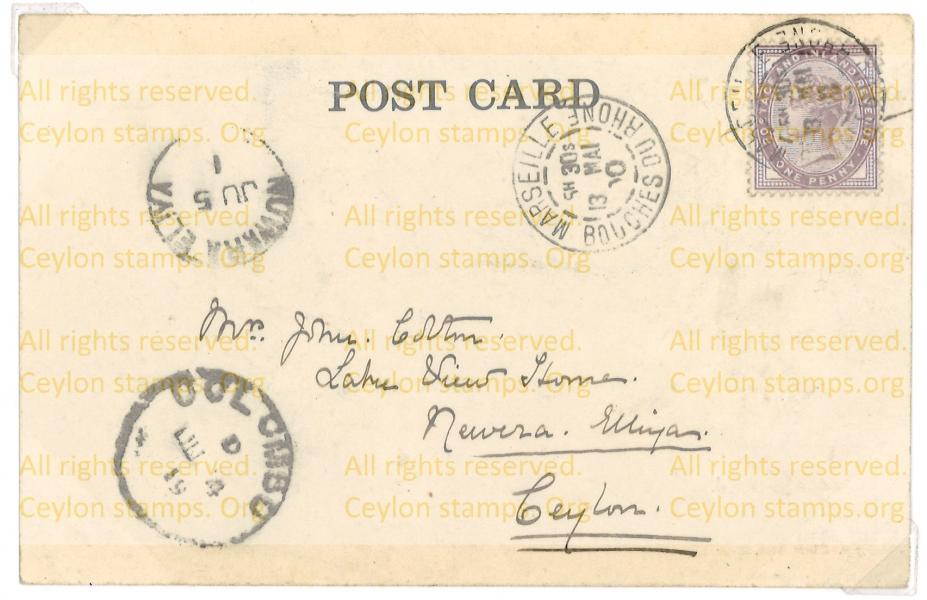 POST CARD
MARSEILLE
BOUCHES DU RHONE
5H 30S
13 MAI
10
POSTAGE AND INLAND REVENUE
ONE PENNY
NUWARA ELIYA
1
JU 5
Mr. John. Colton.
Lake View Home.
Newera. Elliya.
Ceylon.
COLOMBO
D
JU 4
All rights reserved.
Ceylon stamps. Org
All rights reserved.
Ceylon stamps. Org
All rights reserved.
Ceylon stamps. Org
All rights reserved.
Ceylon stamps. Org
All rights reserved.
Ceylon stamps. Org
All rights reserved.
Ceylon stamps. Org
All rights reserved.
Ceylon stamps.org
All rights reserved.
Ceylon stamps.org
All rights reserved.
Ceylon stamps.org
All rights reserved.
Ceylon stamps.org
All rights reserved.
Ceylon stamps. Org
All rights reserved.
Ceylon stamps. Org